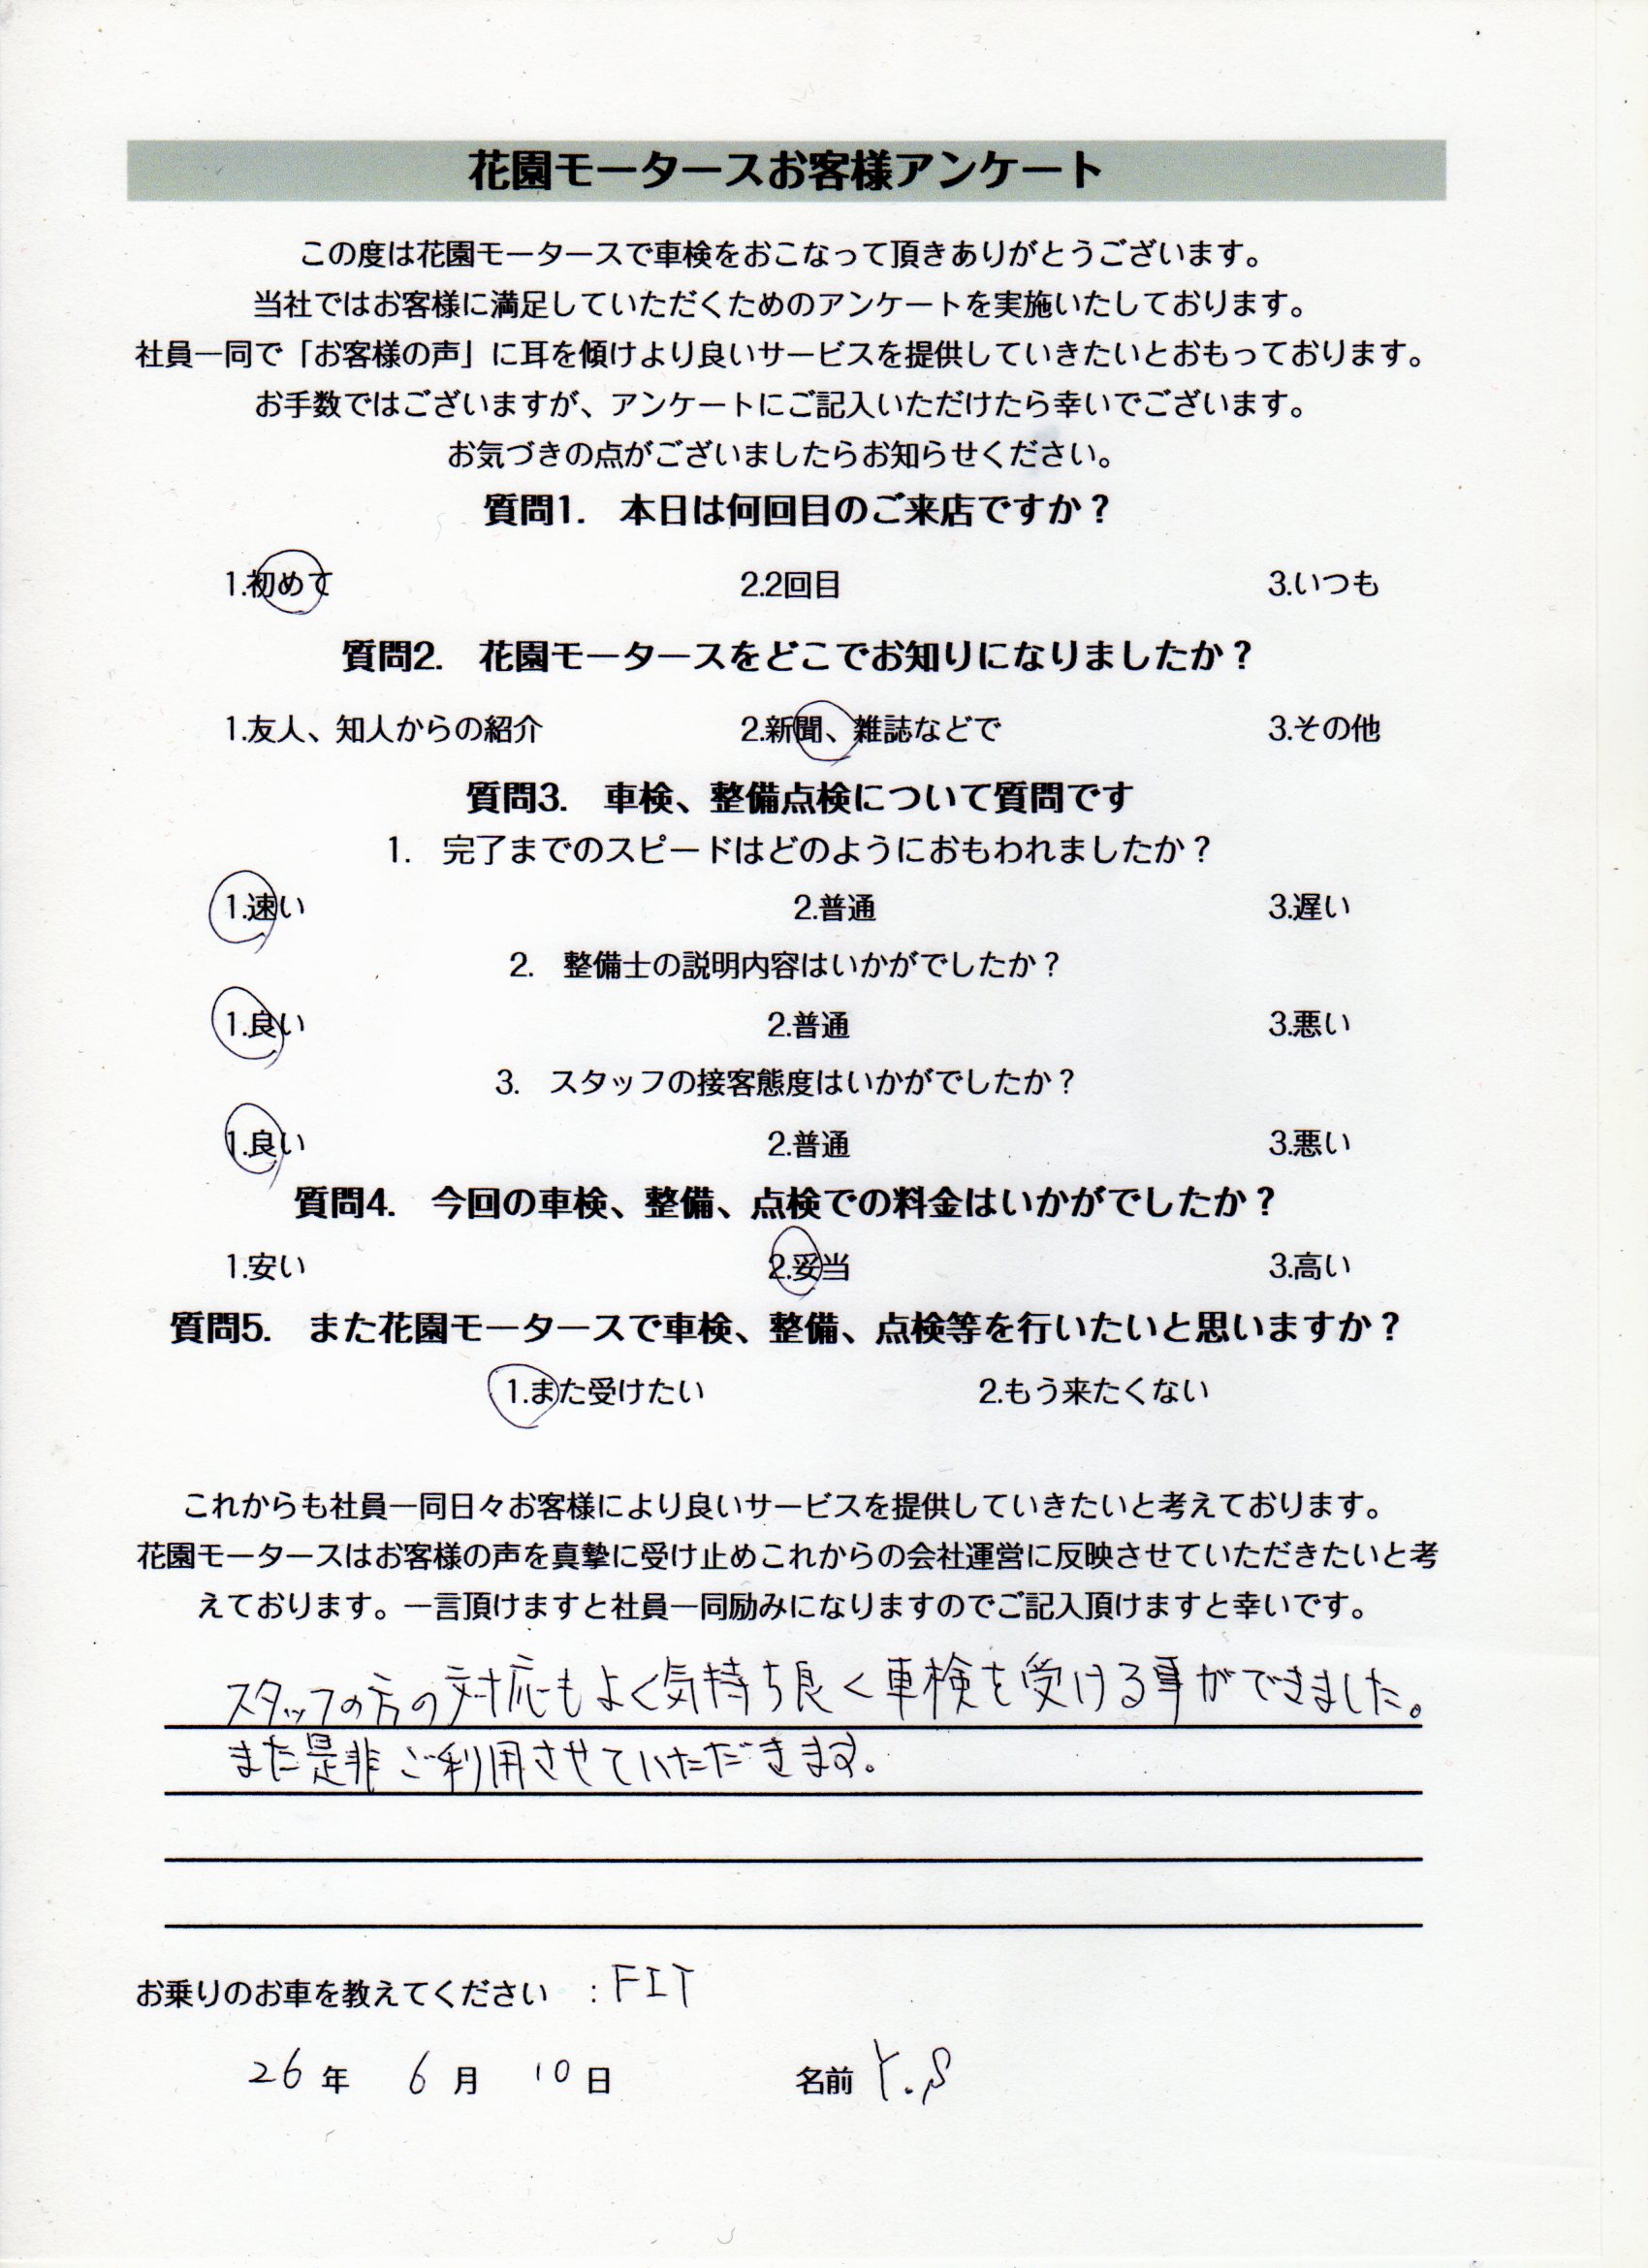 花園モータースお客様アンケート
この度は花園モータースで車検をおこなって頂きありがとうございます。
当社ではお客様に満足していただくためのアンケートを実施いたしております。
社員一同で「お客様の声」に耳を傾けより良いサービスを提供していきたいとおもっております。
お手数ではございますが、アンケートにご記入いただけたら幸いでございます。
お気づきの点がございましたらお知らせください。
質問1. 本日は何回目のご来店ですか？
1.初めて 2.2回目 3.いつも
質問2. 花園モータースをどこでお知りになりましたか？
1.友人、知人からの紹介 2.新聞、雑誌などで 3.その他
質問3. 車検、整備点検について質問です
1. 完了までのスピードはどのようにおもわれましたか？
1.速い 2.普通 3.遅い
2. 整備士の説明内容はいかがでしたか？
1.良い 2.普通 3.悪い
3. スタッフの接客態度はいかがでしたか？
1.良い 2.普通 3.悪い
質問4. 今回の車検、整備、点検での料金はいかがでしたか？
1.安い 2.妥当 3.高い
質問5. また花園モータースで車検、整備、点検等を行いたいと思いますか？
1.また受けたい 2.もう来たくない
これからも社員一同日々お客様により良いサービスを提供していきたいと考えております。
花園モータースはお客様の声を真摯に受け止めこれからの会社運営に反映させていただきたいと考
えております。一言頂けますと社員一同励みになりますのでご記入頂けますと幸いです。
スタッフの方の対応もよく気持ち良く車検を受ける事ができました。
また是非ご利用させていただきます。
お乗りのお車を教えてください :FIT
26年 6月 10日 名前 Y.S